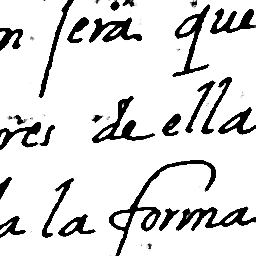 n será que
res de ella
a la forma